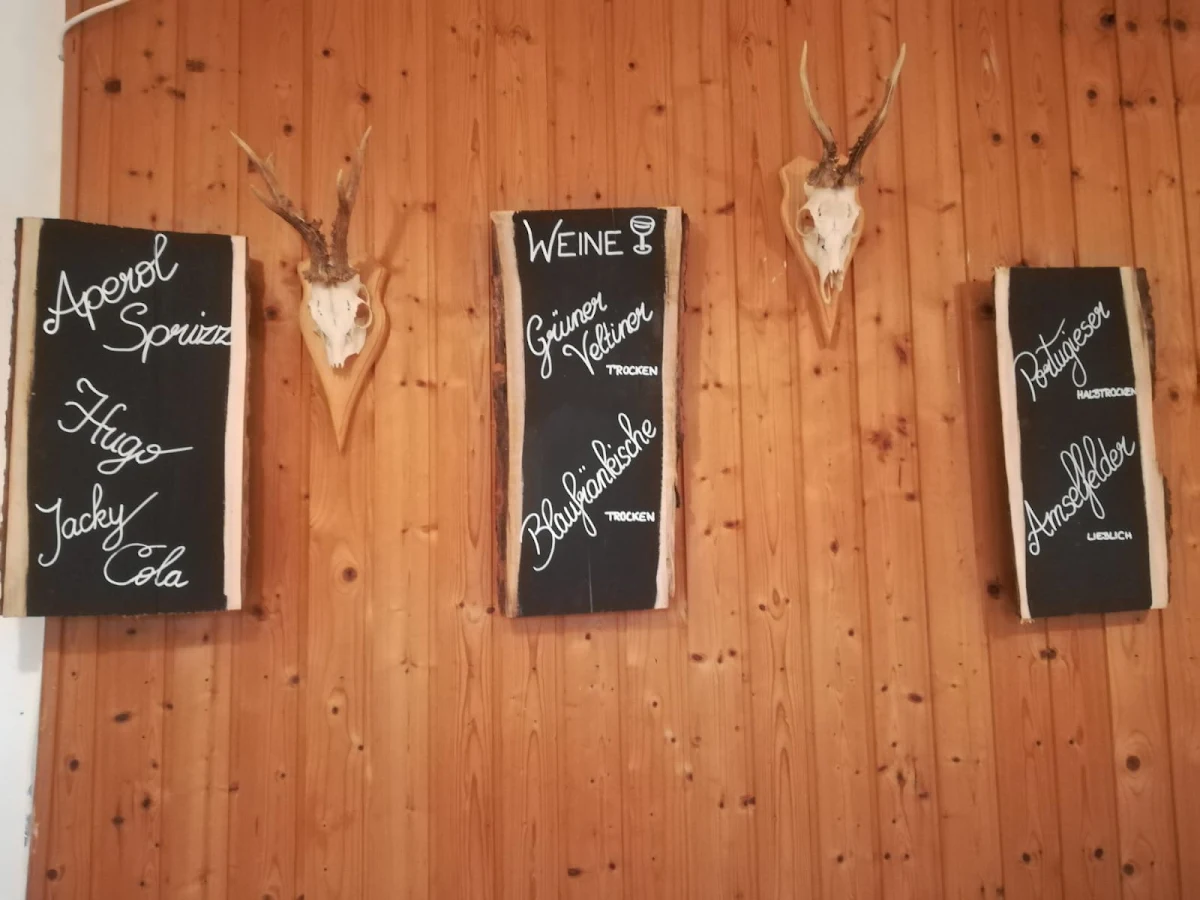 Aperol
Sprizz
Hugo
Jacky
Cola
WEINE
Grüner
Veltiner
TROCKEN
Blaufränkische
TROCKEN
Portugieser
HALBTROCKEN
Amselfelder
LIEBLICH